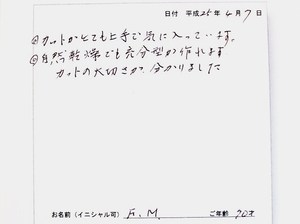 日付 平成25年4月7日
◎カットがとても上手で気に入っています。
◎自然乾燥でも充分型が作れます
カットの大切さが、分かりました
お名前（イニシャル可） F.M. ご年齢 70才